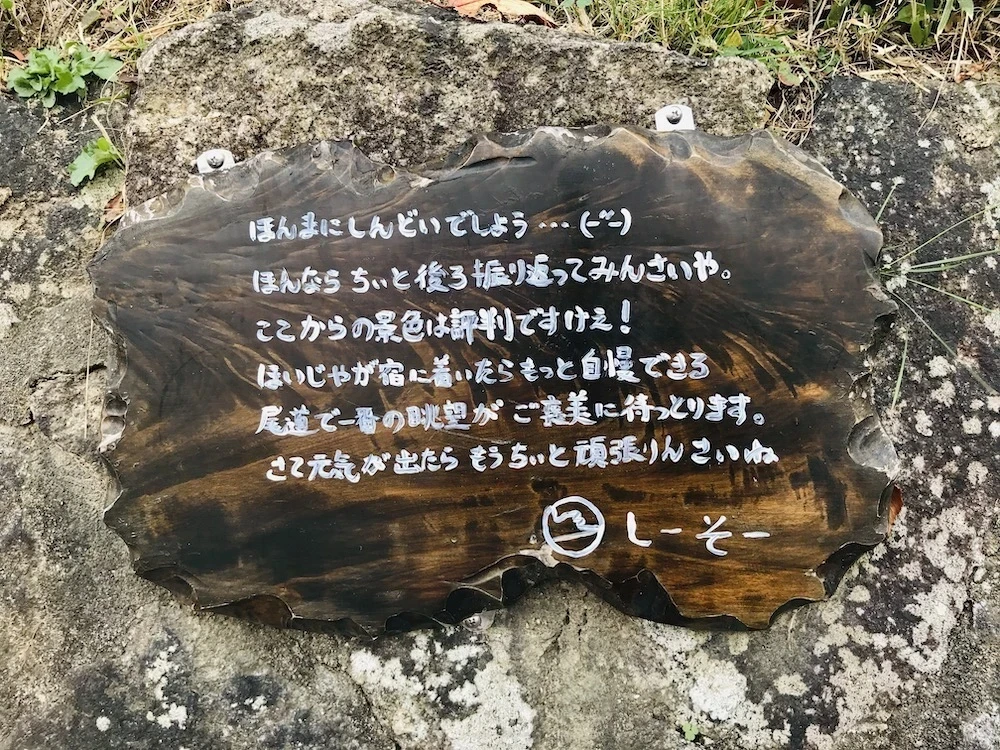 ほんまにしんどいでしょう…(-"-)
ほんなら ちぃと後ろ振り返ってみんさいや。
ここからの景色は評判ですけぇ！
ほいじゃが宿に着いたらもっと自慢できる
尾道で一番の眺望が ご褒美に待っとります。
さて元気が出たら もうちぃと頑張りんさいね
しーそー